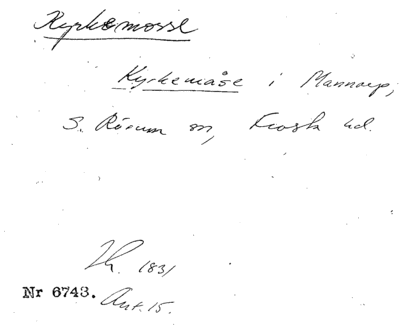 Kyrkemosse
Kyrkemåse i Mannarp,
S. Rörum sn, Frosta hd.
Lh. 1831
Nr 6743. Ant. 15.